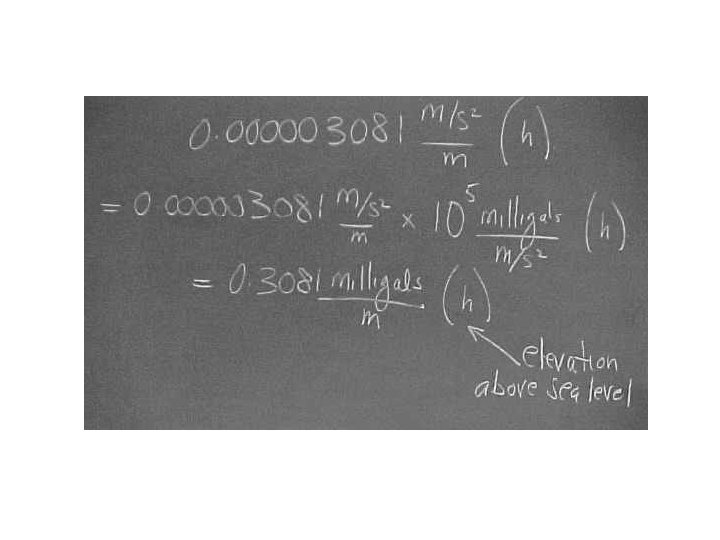 0.000003081 m/s²/m (h)
= 0.000003081 m/s²/m × 10⁵ milligals/m/s² (h)
= 0.3081 milligals/m (h)
elevation
above sea level